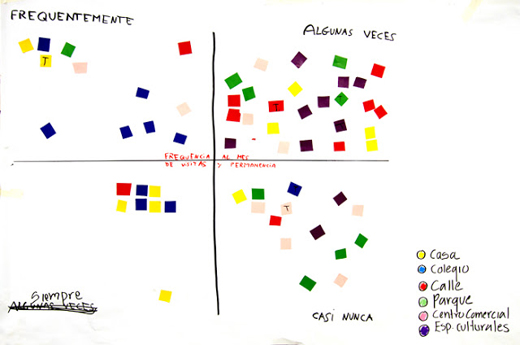 FREQUENTEMENTE
ALGUNAS VECES
T
T
FREQUENCIA AL MES
DE VISITAS Y PERMANENCIA
T
Siempre
ALGUNAS VECES
CASI NUNCA
Casa
Colegio
Calle
Parque
Centro Comercial
Esp. culturales